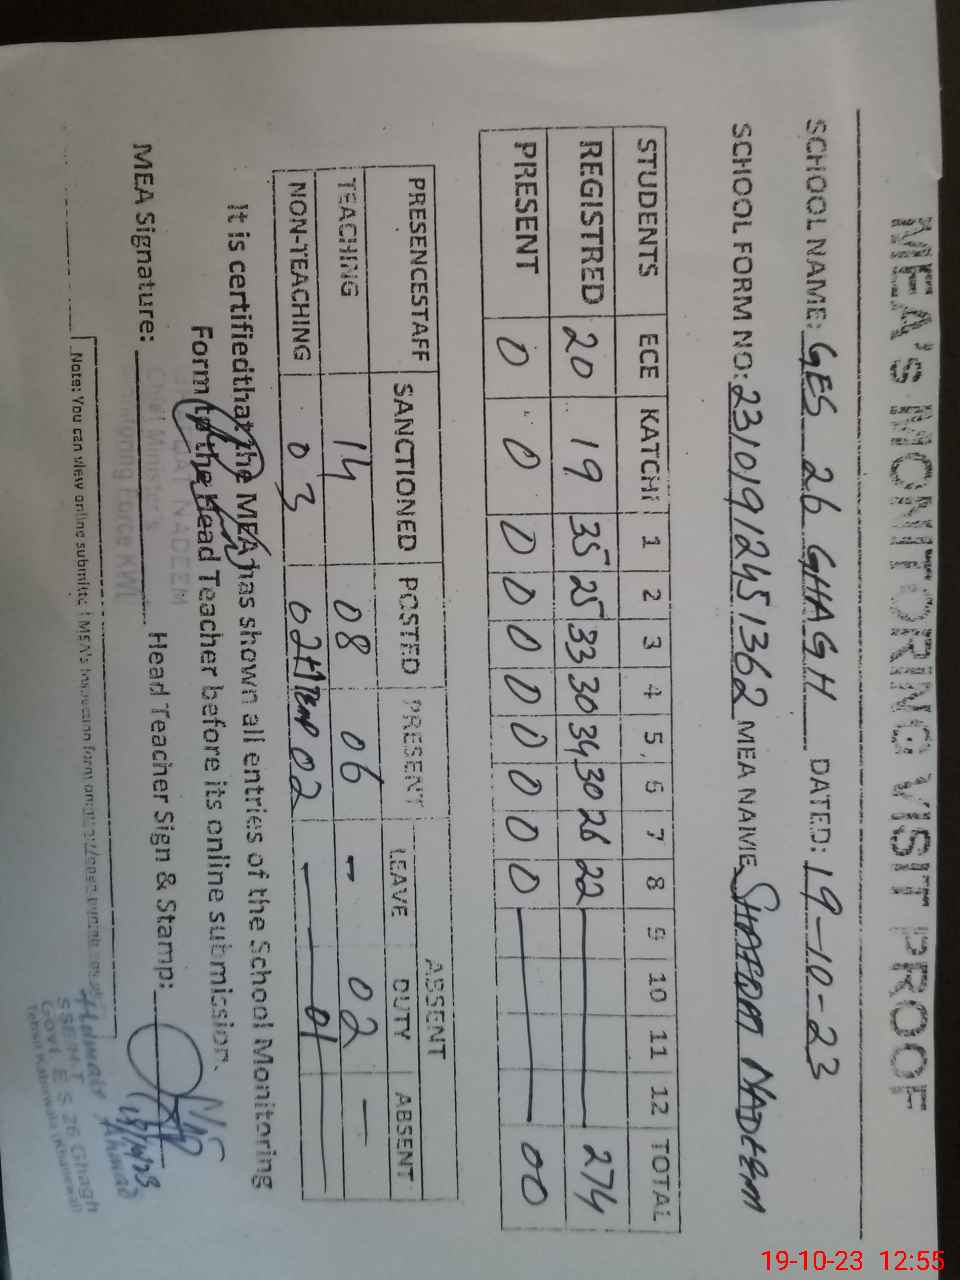 MEA's MONITORING VISIT PROOF
SCHOOL NAME: GES 26 GHAGH DATED: 19-10-23
SCHOOL FORM NO: 23101912451362 MEA NAME Shahzad Nadeem
STUDENTS ECE KATCHI 1 2 3 4 5 6 7 8 9 10 11 12 TOTAL
REGISTRED 20 19 35 25 33 30 34 30 26 22 274
PRESENT 0 0 0 0 0 0 0 0 0 0 00
ABSENT
PRESENCESTAFF SANCTIONED POSTED PRESENT LEAVE DUTY ABSENT
TEACHING 14 08 06 - 02 -
NON-TEACHING 03 02+1 02 - 01
It is certifiedthat the MEA has shown all entries of the School Monitoring
Form to the Head Teacher before its online submission.
NADEEM
Chief Minister's
Monitoring Force KWL
MEA Signature: Head Teacher Sign & Stamp:
19/10/23
Ahmad
Govt. E S 26 Ghagh
Note: You can view online submitted MEA's
19-10-23 12:55